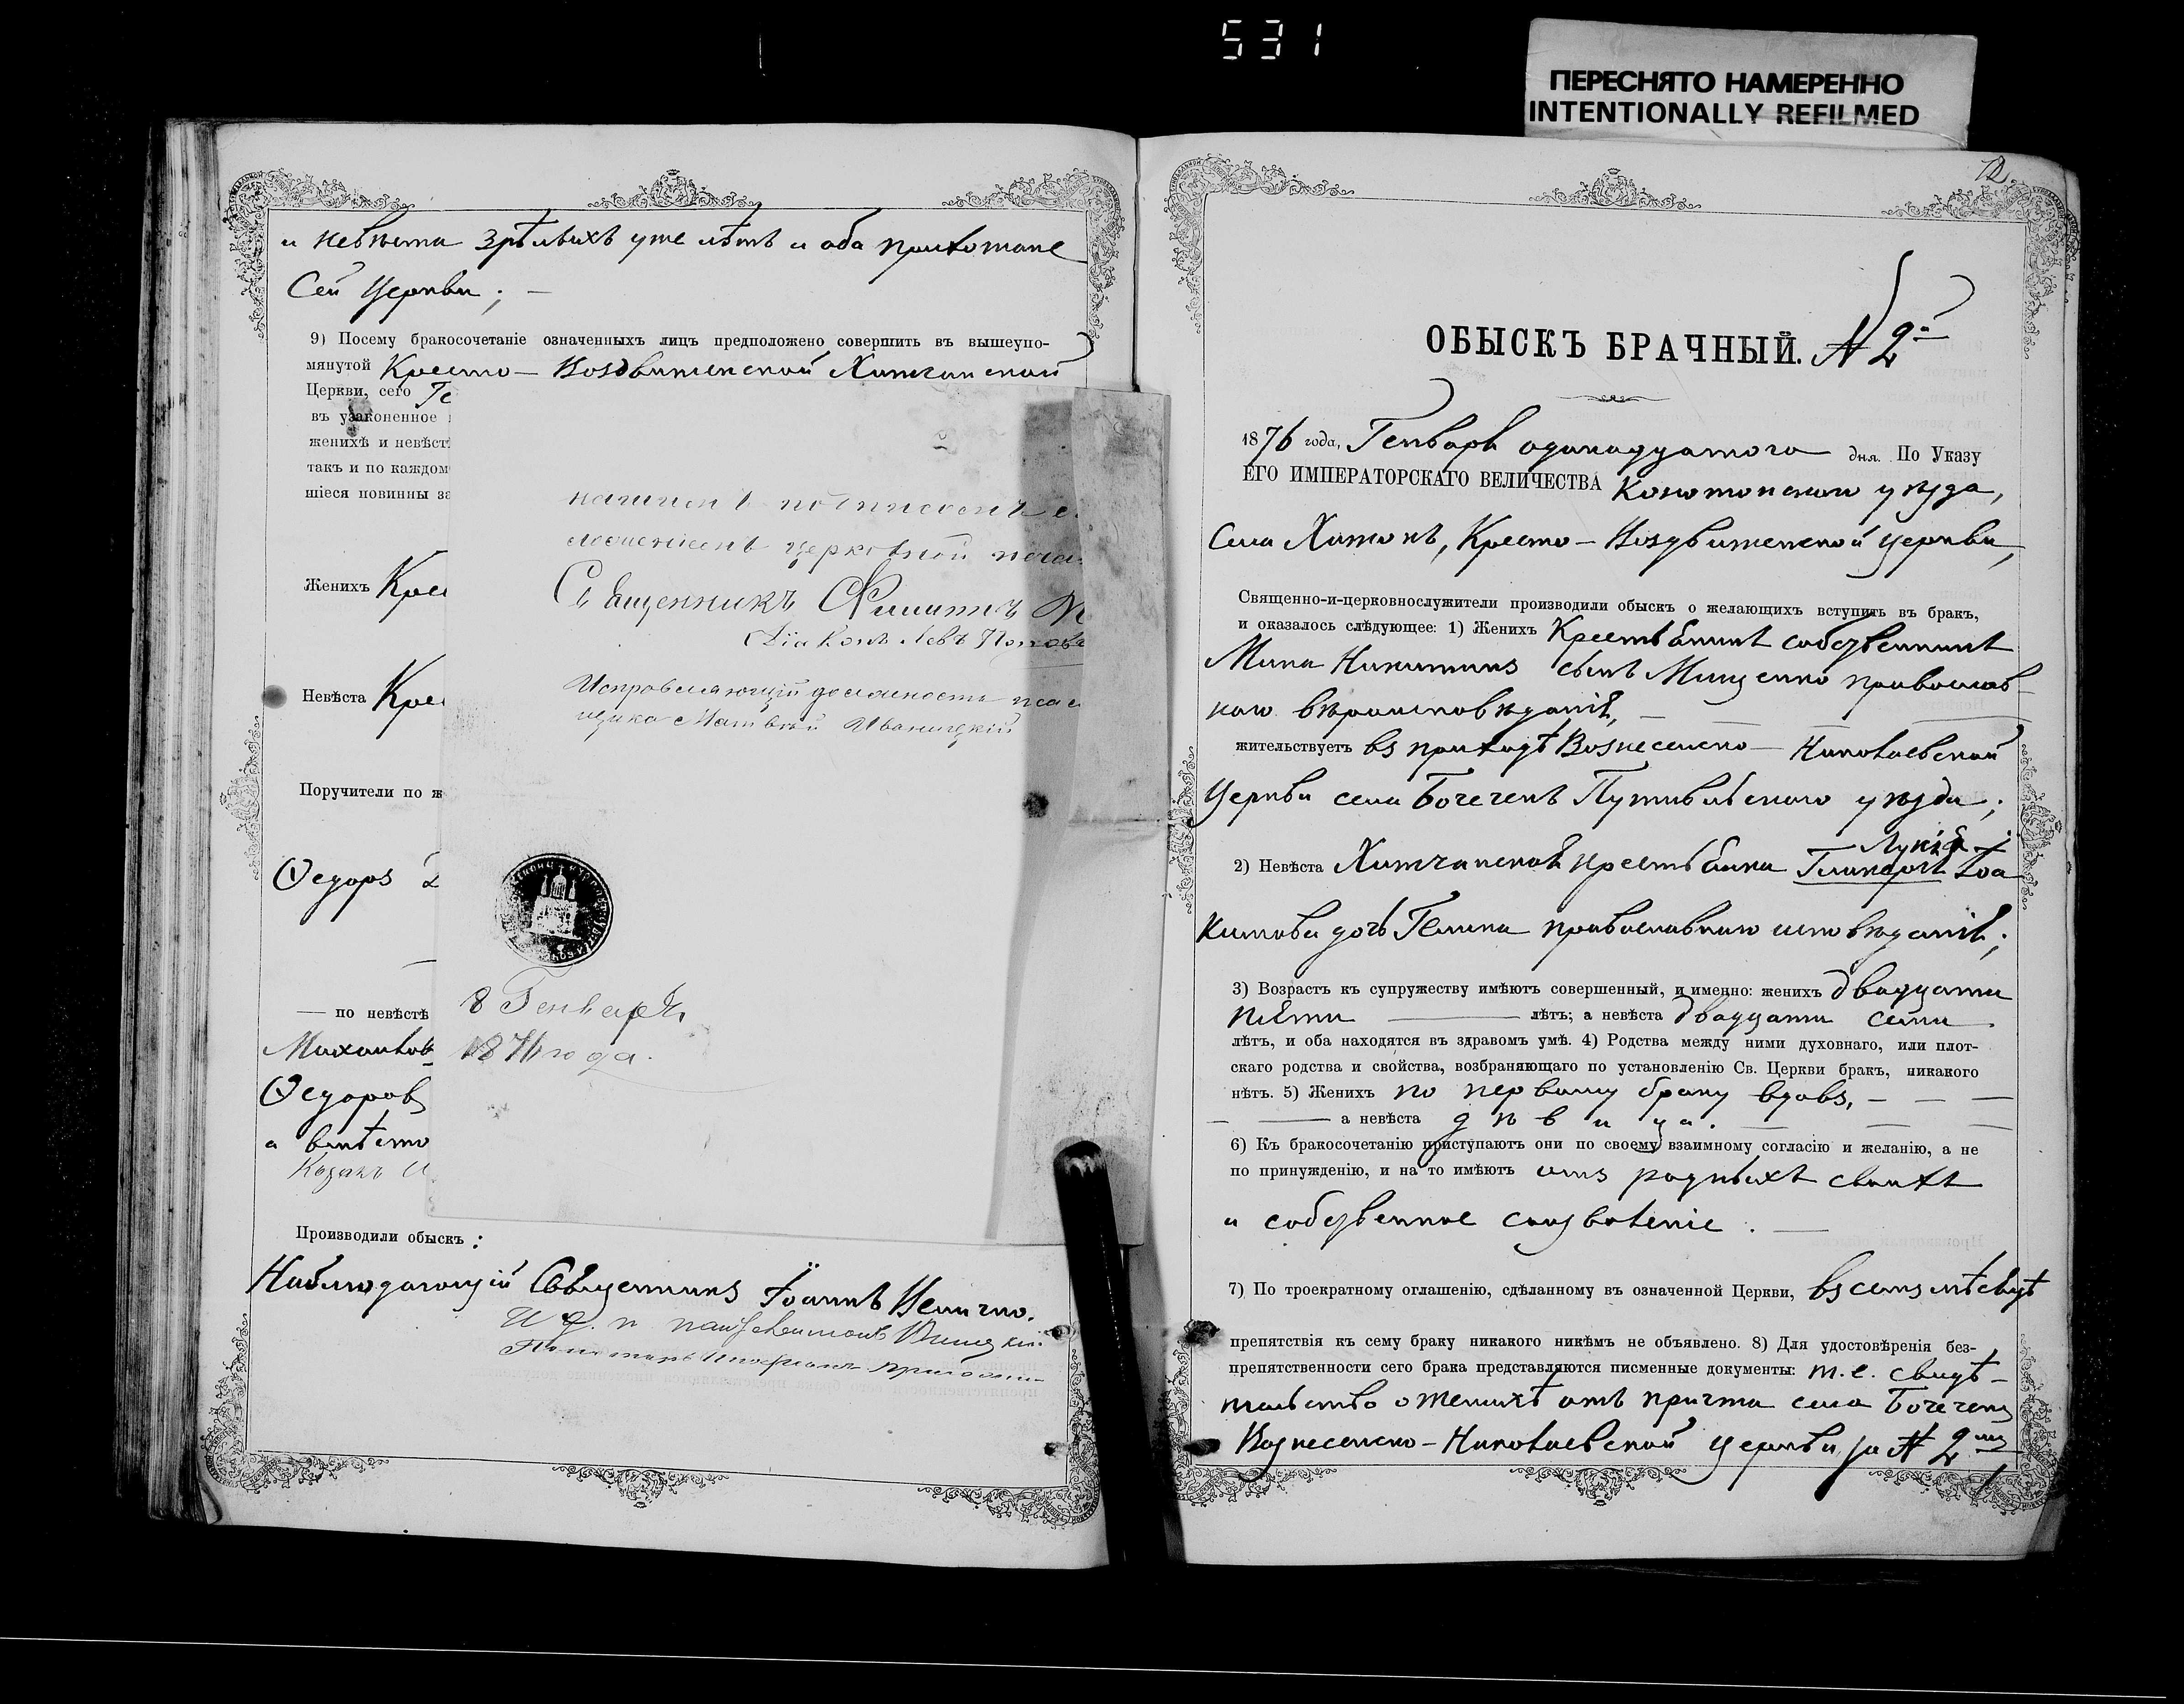 531
ПЕРЕСНЯТО НАМЕРЕННО
INTENTIONALLY REFILMED
и невѣста зрѣлыхъ уже лѣтъ и оба прихожане
Сей Церкви; —
9) Посему бракосочетаніе означенныхъ лицъ предположено совершить въ вышеупо-
мянутой Кресто-Воздвиженской Хижчанской
Церкви, сего Ге
въ узаконенное
женихѣ и невѣст
такъ и по каждом
шіеся повинны за
Женихъ Крес
Невѣста Крес
Поручители по ж
Ѳедоръ
— по невѣстѣ
Михайлов
Ѳедоров
а вмѣсто
Казакъ
церковной
Священникъ Филиппъ
Діаконъ Левъ Попов
Исправляющій должность псал
щика Матвѣй Иваницкій
8 Генваря
1876 года.
Производили обыскъ:
Наблюдающій Священникъ Іоаннъ Величко.
12.
ОБЫСКЪ БРАЧНЫЙ. № 2й
1876 года, Генваря одинадцатого дня. По Указу
ЕГО ИМПЕРАТОРСКАГО ВЕЛИЧЕСТВА Конотопского уѣзда,
Села Хижокъ, Кресто-Воздвиженской церкви,
Священно-и-церковнослужители производили обыскъ о желающихъ вступить въ бракъ,
и оказалось слѣдующее: 1) Женихъ Крестьянинъ собственникъ
Мина Никитинъ сынъ Мищенко православ-
наго вѣроисповѣданія, —
жительствуетъ въ приходѣ Вознесенско-Николаевской
Церкви села Бочечекъ Путивльского уѣзда;
2) Невѣста Хижчанская крестьянка Гликерія Іоа
Лукія
кимова дочь Гемина православнаго исповѣданія;
3) Возрастъ къ супружеству имѣютъ совершенный, и именно: женихъ двадцати
пяти — лѣтъ; а невѣста двадцати семи
лѣтъ, и оба находятся въ здравомъ умѣ. 4) Родства между ними духовнаго, или плот-
скаго родства и свойства, возбраняющаго по установленію Св. Церкви бракъ, никакого
нѣтъ. 5) Женихъ по первому браку вдовъ, —
— а невѣста дѣвица. —
6) Къ бракосочетанію приступаютъ они по своему взаимному согласію и желанію, а не
по принужденію, и на то имѣютъ отъ родныхъ своихъ
и собственное соизволеніе. —
7) По троекратному оглашенію, сдѣланному въ означенной Церкви, въ семъ мѣсяцѣ
препятствія къ сему браку никакого никѣмъ не объявлено. 8) Для удостовѣренія без-
препятственности сего брака представляются писменные документы: т. е. свидѣ-
тельство о женихѣ отъ причта села Бочечекъ
Вознесенско-Николаевской церкви за № 2мъ